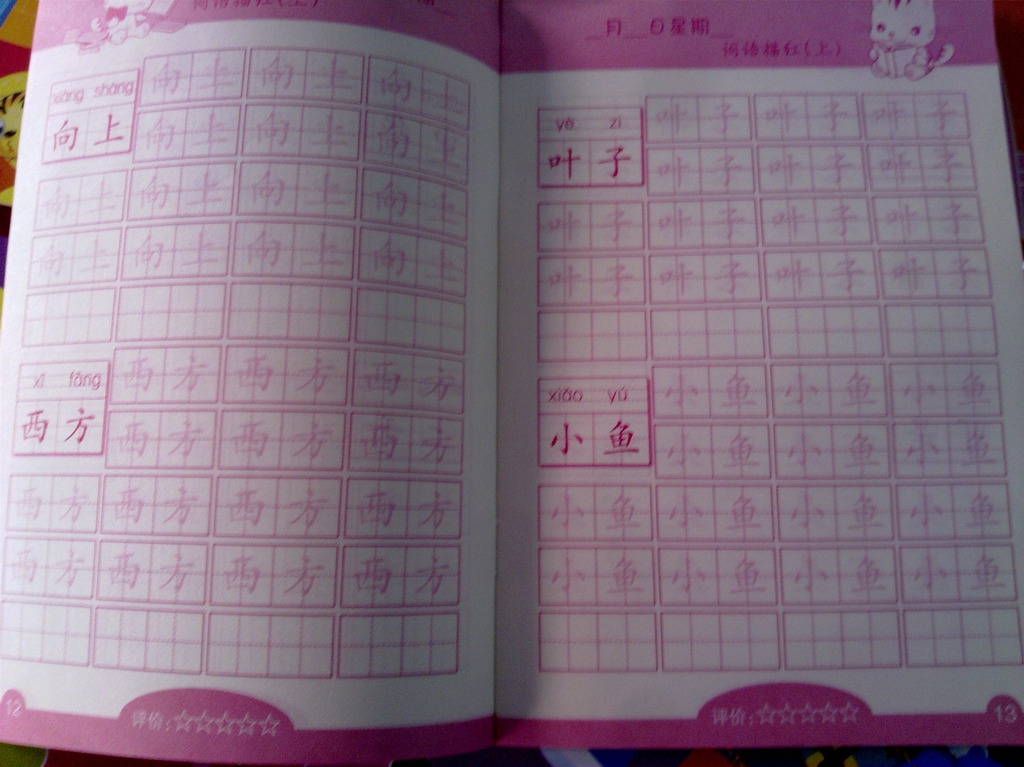 词语描红(上)
期
xiàng shàng
向 上
向 上 向 上 向 上
向 上 向 上 向 上
向 上 向 上 向 上 向 上
向 上 向 上 向 上 向 上
xī fāng
西 方
西 方 西 方 西 方
西 方 西 方 西 方
西 方 西 方 西 方 西 方
西 方 西 方 西 方 西 方
12
评价:☆☆☆☆☆
__月__日星期__
词语描红(上)
yè zi
叶 子
叶 子 叶 子 叶 子
叶 子 叶 子 叶 子
叶 子 叶 子 叶 子 叶 子
叶 子 叶 子 叶 子 叶 子
xiǎo yú
小 鱼
小 鱼 小 鱼 小 鱼
小 鱼 小 鱼 小 鱼
小 鱼 小 鱼 小 鱼 小 鱼
小 鱼 小 鱼 小 鱼 小 鱼
评价:☆☆☆☆☆
13